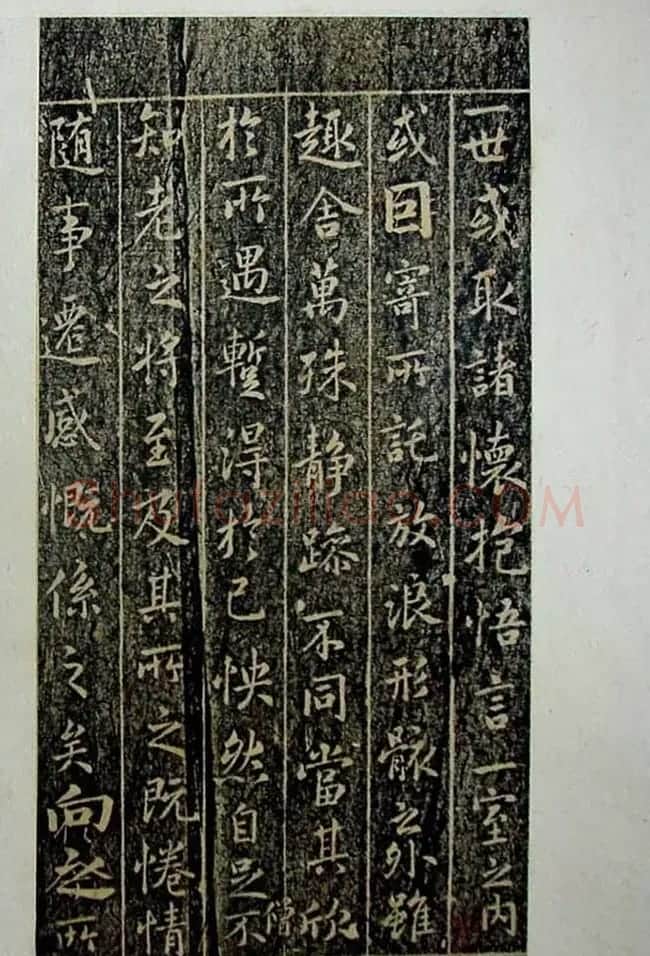 一世或取諸懷抱悟言一室之内
或因寄所託放浪形骸之外雖
趣舍萬殊静躁不同當其欣
僧
於所遇暫得於己怏然自足不
知老之将至及其所之既惓情
随事遷感慨係之矣向之所
shufaziliao.COM